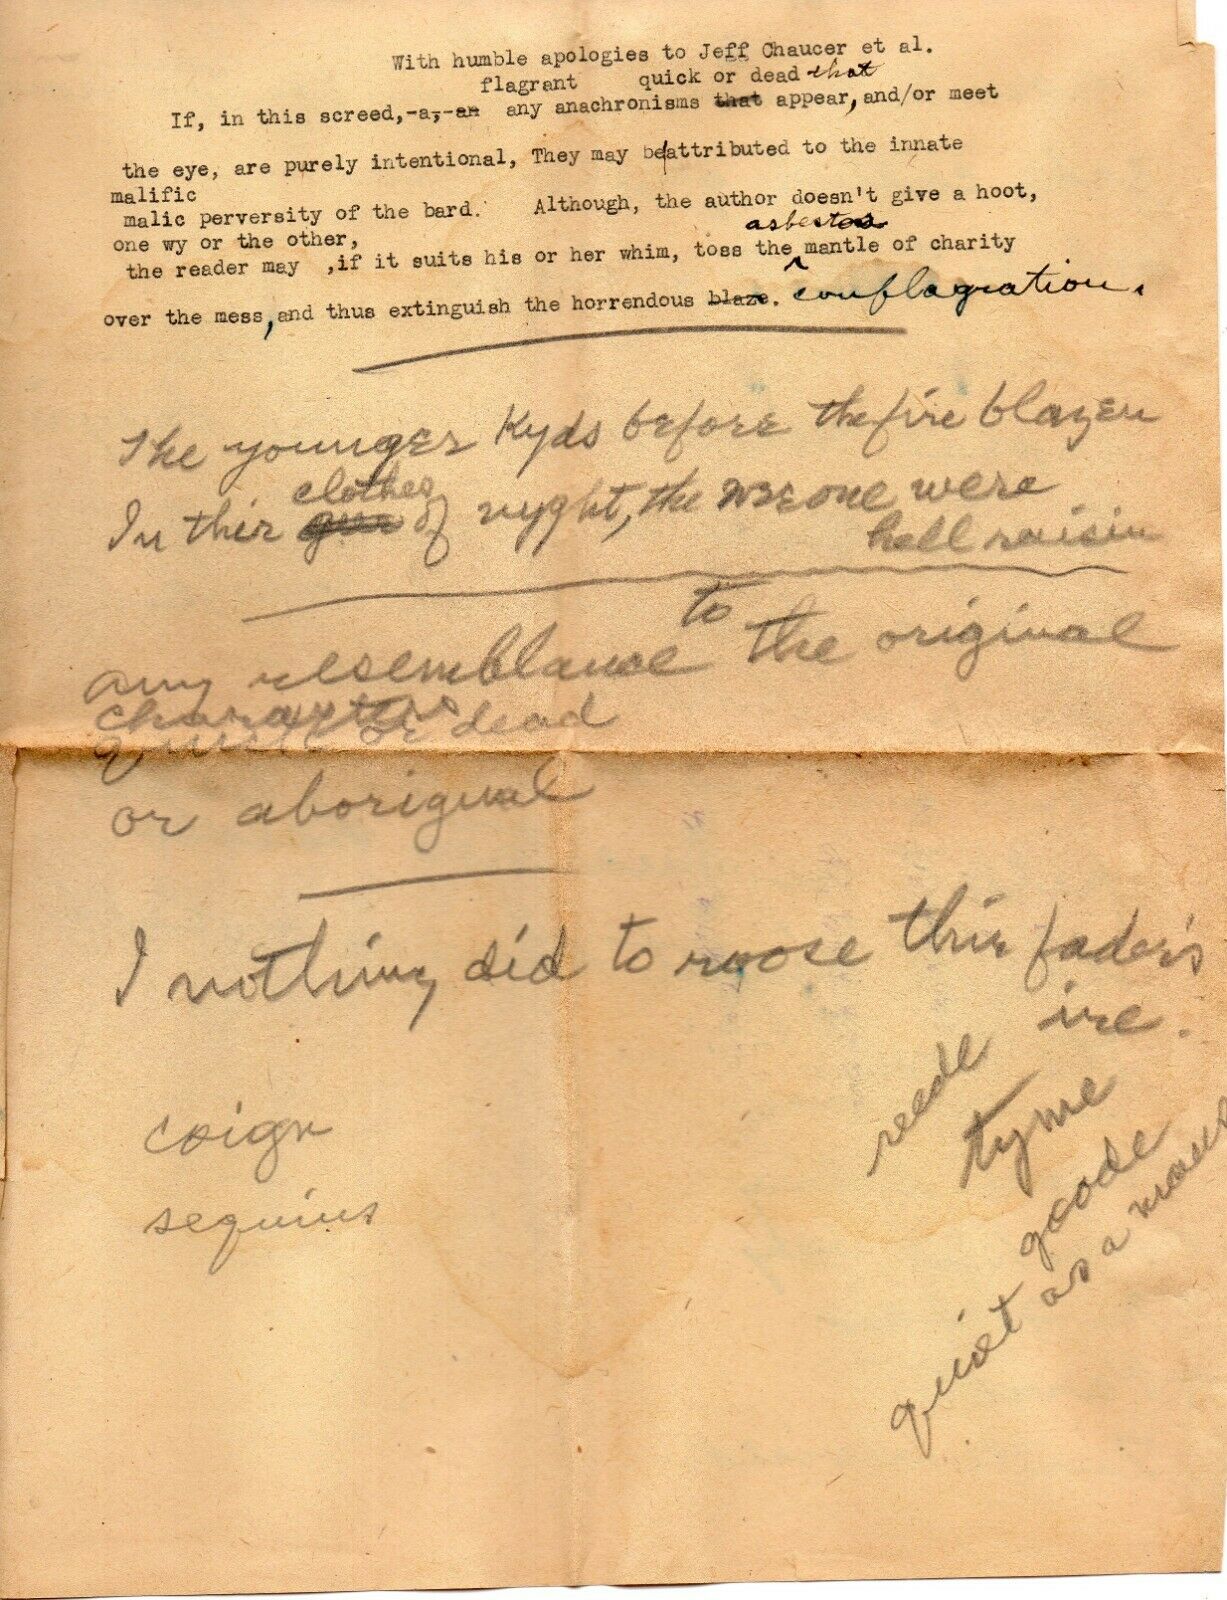 With humble apologies to Jeff Chaucer et al.
flagrant quick or dead that
If, in this screed,-a,-an any anachronisms that appear, and/or meet
the eye, are purely intentional, They may be attributed to the innate
malific
malic perversity of the bard. Although, the author doesn't give a hoot,
one wy or the other,
asbestos
the reader may ,if it suits his or her whim, toss the mantle of charity
over the mess, and thus extinguish the horrendous blaze. conflagration.
The younger Kyds before the fire blazen
clothes
In thir of nyght, the were
hell raisin
to
any resemblance the original
characters
quick or dead
or aboriginal
I nothing did to roose thir fader's
ire.
rede
tyme
goode
quiet as a mous
coign
sequins